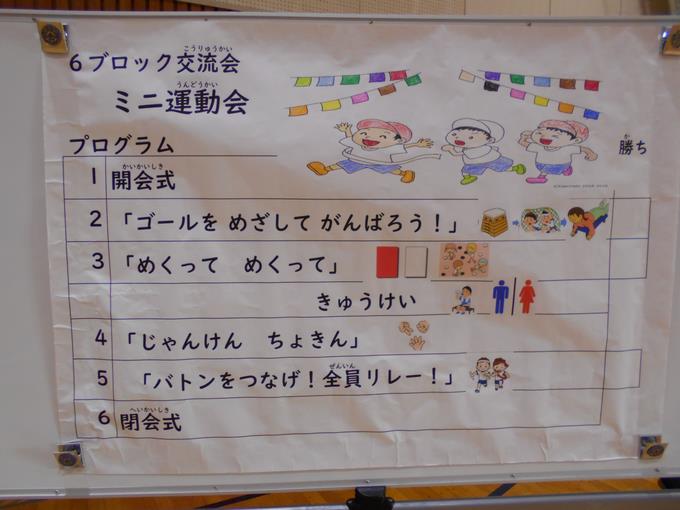 6ブロック交流会
こうりゅうかい
ミニ運動会
うんどうかい
プログラム
勝ち
か
1 開会式
かいかいしき
2 「ゴールを めざして がんばろう！」
3 「めくって めくって」
きゅうけい
4 「じゃんけん ちょきん」
5 「バトンをつなげ！全員リレー！」
ぜんいん
6 閉会式
へいかいしき